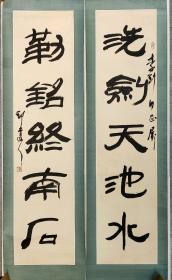 洗劍天池水
勒銘終南石